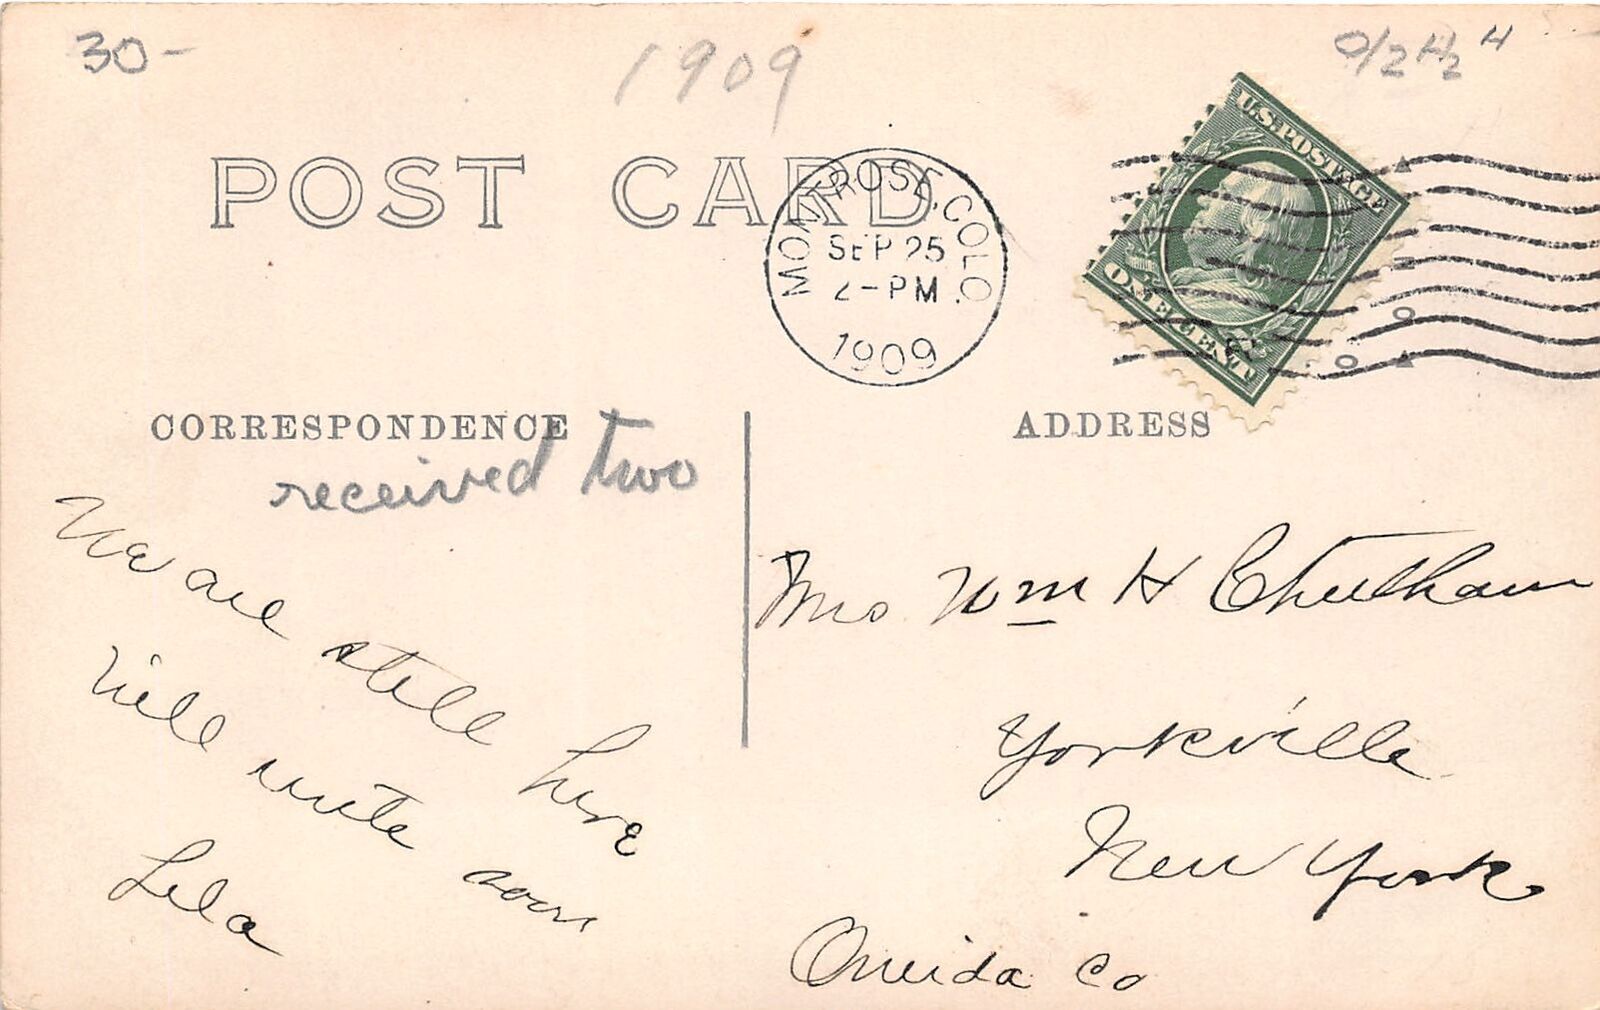 30-
1909
POST CARD
MONTROSE, COLO.
SEP 25
2-PM
1909
U.S. POSTAGE
ONE CENT
CORRESPONDENCE
received two
We are still here
Will write soon
Lela
ADDRESS
Mrs Wm H Cheetham
Yorkville
New York
Oneida Co